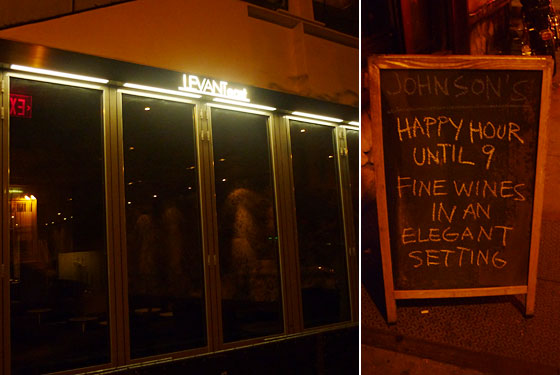 LEVANTeast
EXI
JOHNSON'S
HAPPY HOUR
UNTIL 9
FINE WINES
IN AN
ELEGANT
SETTING